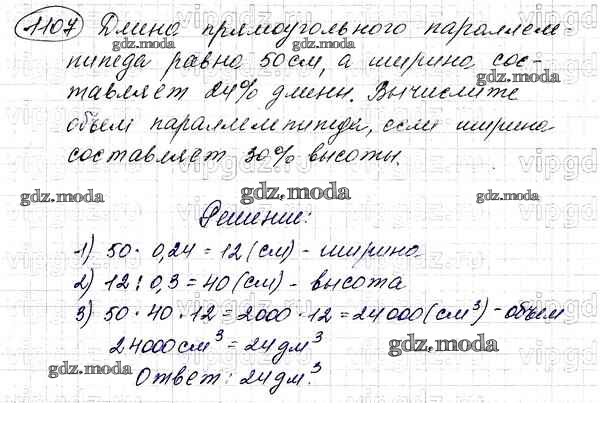 1107 Длина прямоугольного параллеле-
пипеда равна 50см, а ширина сос-
тавляет 24% длины. Вычислите
объем параллелепипеда, если ширина
составляет 30% высоты.
Решение:
1) 50 · 0,24 = 12 (см) - ширина
2) 12 : 0,3 = 40 (см) - высота
3) 50 · 40 · 12 = 2000 · 12 = 24000 (см³) - объем
24000 см³ = 24 дм³
Ответ: 24 дм³.
gdz.moda
gdz.moda
gdz.moda
gdz.moda
gdz.moda
gdz.moda
gdz.moda
gdz.moda